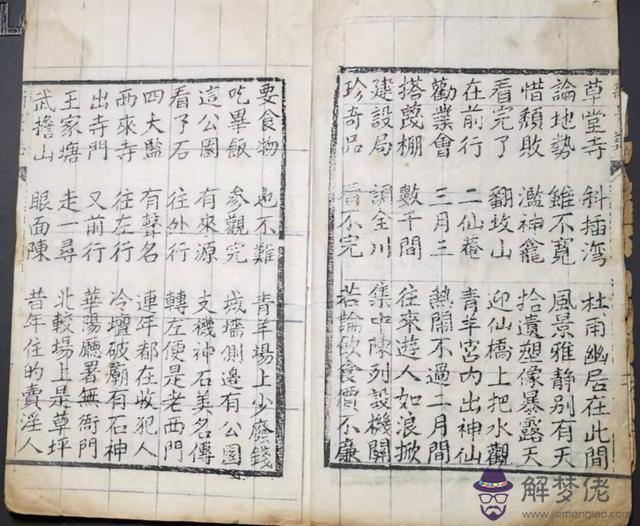 草堂寺 斜插湾 杜甫幽居在此間
論地勢 雖不寬 風景雅静别有天
惜頽敗 濫神龕 拾遺塑像暴露天
看完了 翻坟山 迎仙橋上把水觀
在前行 二仙菴 青羊宮内出神仙
勸業會 三月三 熱鬧不過二月間
搭蓆棚 數千間 往來遊人如浪掀
建設局 調全川 集中陳列設機關
珍奇品 看不完 若論飲食價不廉
要食物 也不難 青羊場上少廢錢
吃畢飯 參觀完 城墻側邊有公園
這公園 有來源 支磯神石美名傳
看了石 往外行 轉左便是老西門
四大監 有聲名 連年都在收犯人
西來寺 往左行 冷壇破廟有石神
出寺門 又前行 華陽廳署無衙門
王家塘 走一尋 北較場上是草坪
武擔山 眼面陳 昔年住的賣淫人
解梦佬
www.jiemenglao.com